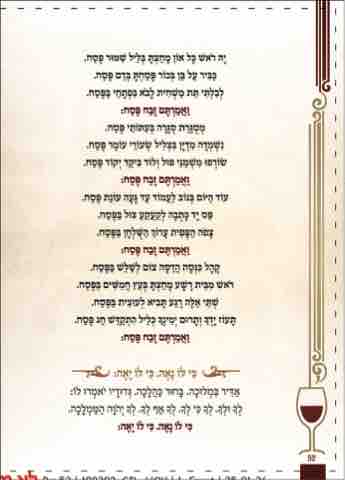 יָהּ רֹאשׁ כָּל אוֹן מָחַצְתָּ בְּלֵיל שִׁמּוּר פֶּסַח,
כַּבִּיר עַל בֵּן בְּכוֹר פָּסַחְתָּ בְּדַם פֶּסַח,
לְבִלְתִּי תֵּת מַשְׁחִית לָבֹא בִּפְתָחַי בַּפֶּסַח,
וַאֲמַרְתֶּם זֶבַח פֶּסַח:
מְסֻגֶּרֶת סֻגָּרָה בְּעִתּוֹתֵי פֶּסַח,
נִשְׁמְדָה מִדְיָן בִּצְלִיל שְׂעוֹרֵי עֹמֶר פֶּסַח,
שׂוֹרְפוּ מִשְׁמַנֵּי פּוּל וְלוּד בִּיקַד יְקוֹד פֶּסַח,
וַאֲמַרְתֶּם זֶבַח פֶּסַח:
עוֹד הַיּוֹם בְּנוֹב לַעֲמוֹד עַד גָּעָה עוֹנַת פֶּסַח,
פַּס יָד כָּתְבָה לְקַעֲקֵעַ צוּל בַּפֶּסַח,
צָפֹה הַצָּפִית עָרוֹךְ הַשֻּׁלְחָן בַּפֶּסַח,
וַאֲמַרְתֶּם זֶבַח פֶּסַח:
קָהָל כִּנְּסָה הֲדַסָּה צוֹם לְשַׁלֵּשׁ בַּפֶּסַח,
רֹאשׁ מִבֵּית רָשָׁע מָחַצְתָּ בְּעֵץ חֲמִשִּׁים בַּפֶּסַח,
שְׁתֵּי אֵלֶּה רֶגַע תָּבִיא לְעוּצִית בַּפֶּסַח,
תָּעֹז יָדְךָ וְתָרוּם יְמִינְךָ כְּלֵיל הִתְקַדֵּשׁ חַג פֶּסַח,
וַאֲמַרְתֶּם זֶבַח פֶּסַח:
כִּי לוֹ נָאֶה, כִּי לוֹ יָאֶה:
אַדִּיר בִּמְלוּכָה, בָּחוּר כַּהֲלָכָה, גְּדוּדָיו יֹאמְרוּ לוֹ:
לְךָ וּלְךָ, לְךָ כִּי לְךָ, לְךָ אַף לְךָ, לְךָ יְהֹוָה הַמַּמְלָכָה,
כִּי לוֹ נָאֶה, כִּי לוֹ יָאֶה: